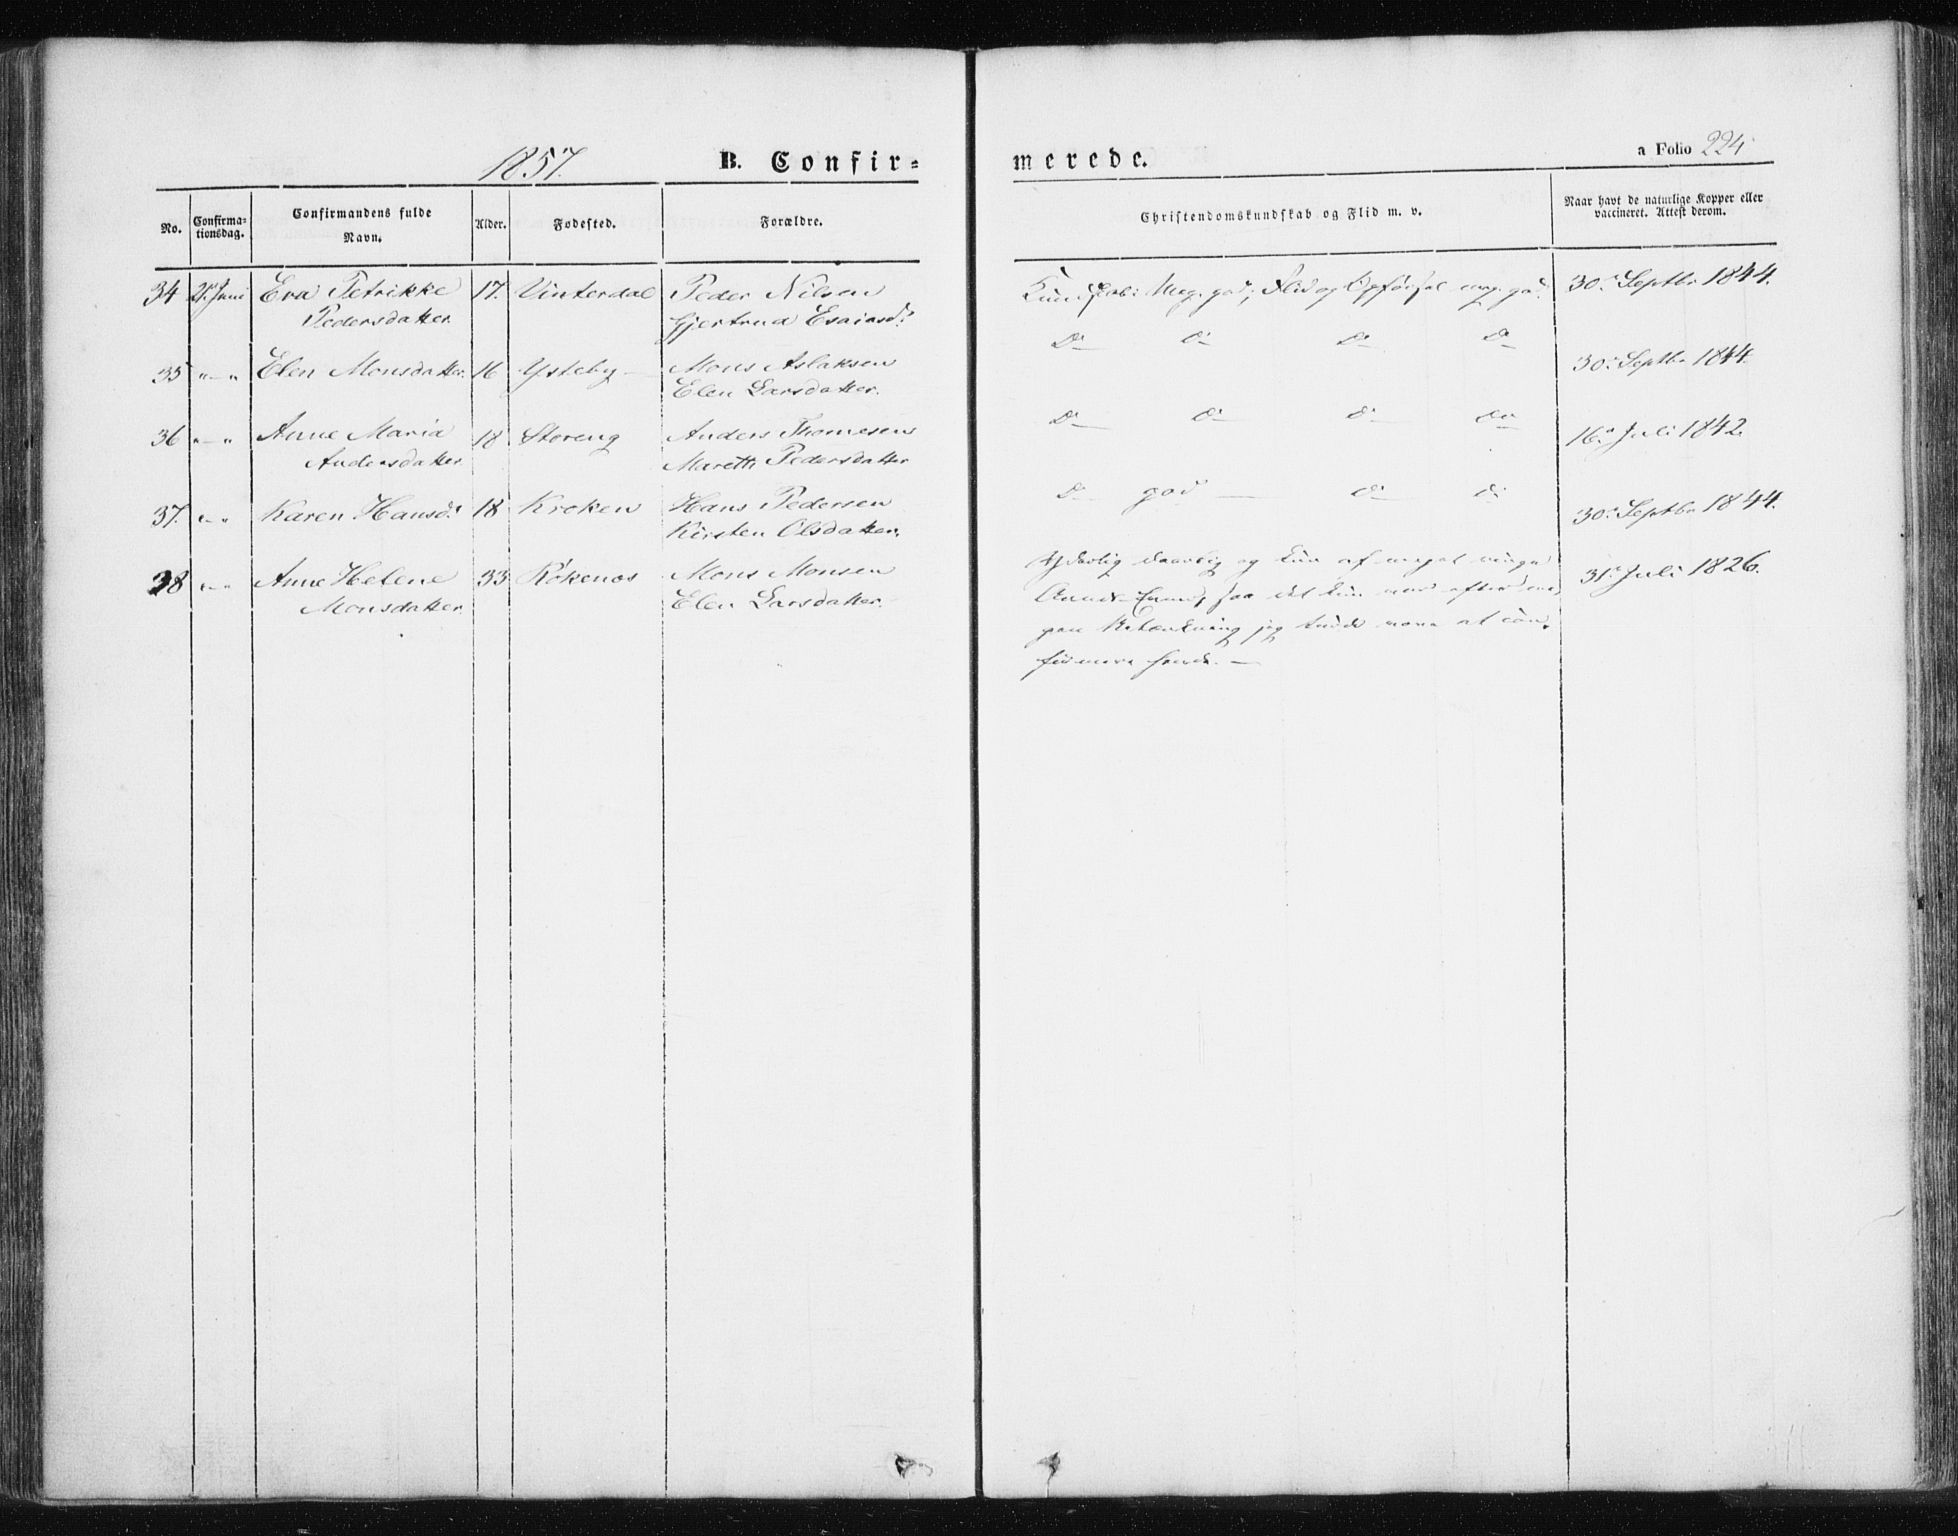 1857.
B. Confir=
merede.
a Folio 224
No.
Confirma=
tionsdag.
Confirmandens fulde
Navn.
Alder.
Fødested.
Forældre.
Christendomskundskab og Flid m. v.
Naar havt de naturlige Kopper eller
vaccineret. Attest derom.
34 21. Juni Eva Petrikke 17. Vinterdal Peder Nilsen Kundskab: Meg. god; Flid og Opførsel meg. god. 30. Septbr 1844.
Pedersdatter Gjertrud Esaiasd.
35 "—" Elen Monsdatter 16 Ysteby — Mons Aslaksen Do Do Do Do 30. Septbr 1844.
Elen Larsdatter.
36 "—" Anne Maria 18 Storeng Anders Thomesen Do Do Do Do 16. Juli 1842.
Andersdatter Marethe Pedersdatter
37. "—" Karen Hansd. 18 Kroken Hans Pedersen Do god — Do Do 30. Septbr 1844.
Kirsten Olsdatter.
38 "—" Anne Helene 33 Rökenes Mons Monsen Yderlig daarlig og kun af meget ringe 31. Juli 1826.
Monsdatter Elen Larsdatter.
saa det kun var efter
Betænkning jeg turde vove at con=
firmere hende. —